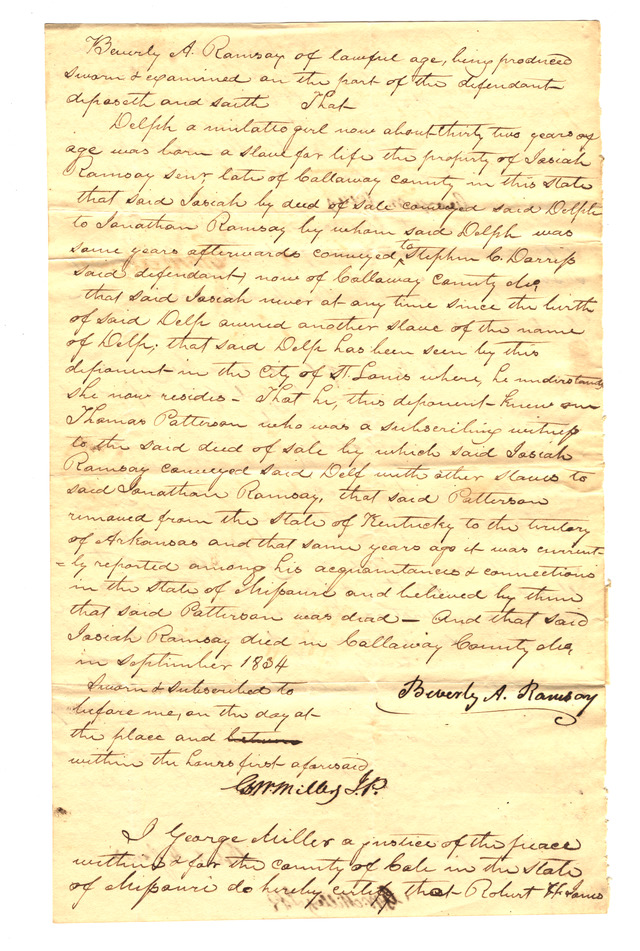 Beverly A. Ramsay of lawful age, being produced
sworn & examined on the part of the defendant
deposeth and saith That
Delph a mulatto girl now about thirty two years of
age was born a slave for life the property of Josiah
Ramsay senr late of Callaway county in this State
that said Josiah by deed of sale conveyed said Delph
to Jonathan Ramsay by whom said Delph was
some years afterwards conveyed to Stephen C. Dorriss
said defendant now of Callaway County
that said Josiah never at any time since the birth
of said Delp owned another slave of the name
of Delp; that said Delp has been seen by this
deponent in the City of St Louis where, he understands
she now resides - That he, this deponent knew one
Thomas Patterson who was a subscribing witness
to the said deed of sale by which said Josiah
Ramsay conveyed said Delf with other slaves to
said Jonathan Ramsay, that said Patterson
removed from the State of Kentucky to the teritory
of Arkansas and that some years ago it was current
-ly reported among his acquaintances & connections
in the State of Missouri and believed by them
that said Patterson was dead — And that said
Josiah Ramsay died in Callaway County
in September 1834
Sworn & Subscribed to
Beverly A. Ramsay
before me, on the day at
the place and between
within the hours first aforesaid
Geo W Miller J.P.
I George Miller a justice of the peace
within & for the county of Cole in the State
of Missouri do hereby certify that Robert W